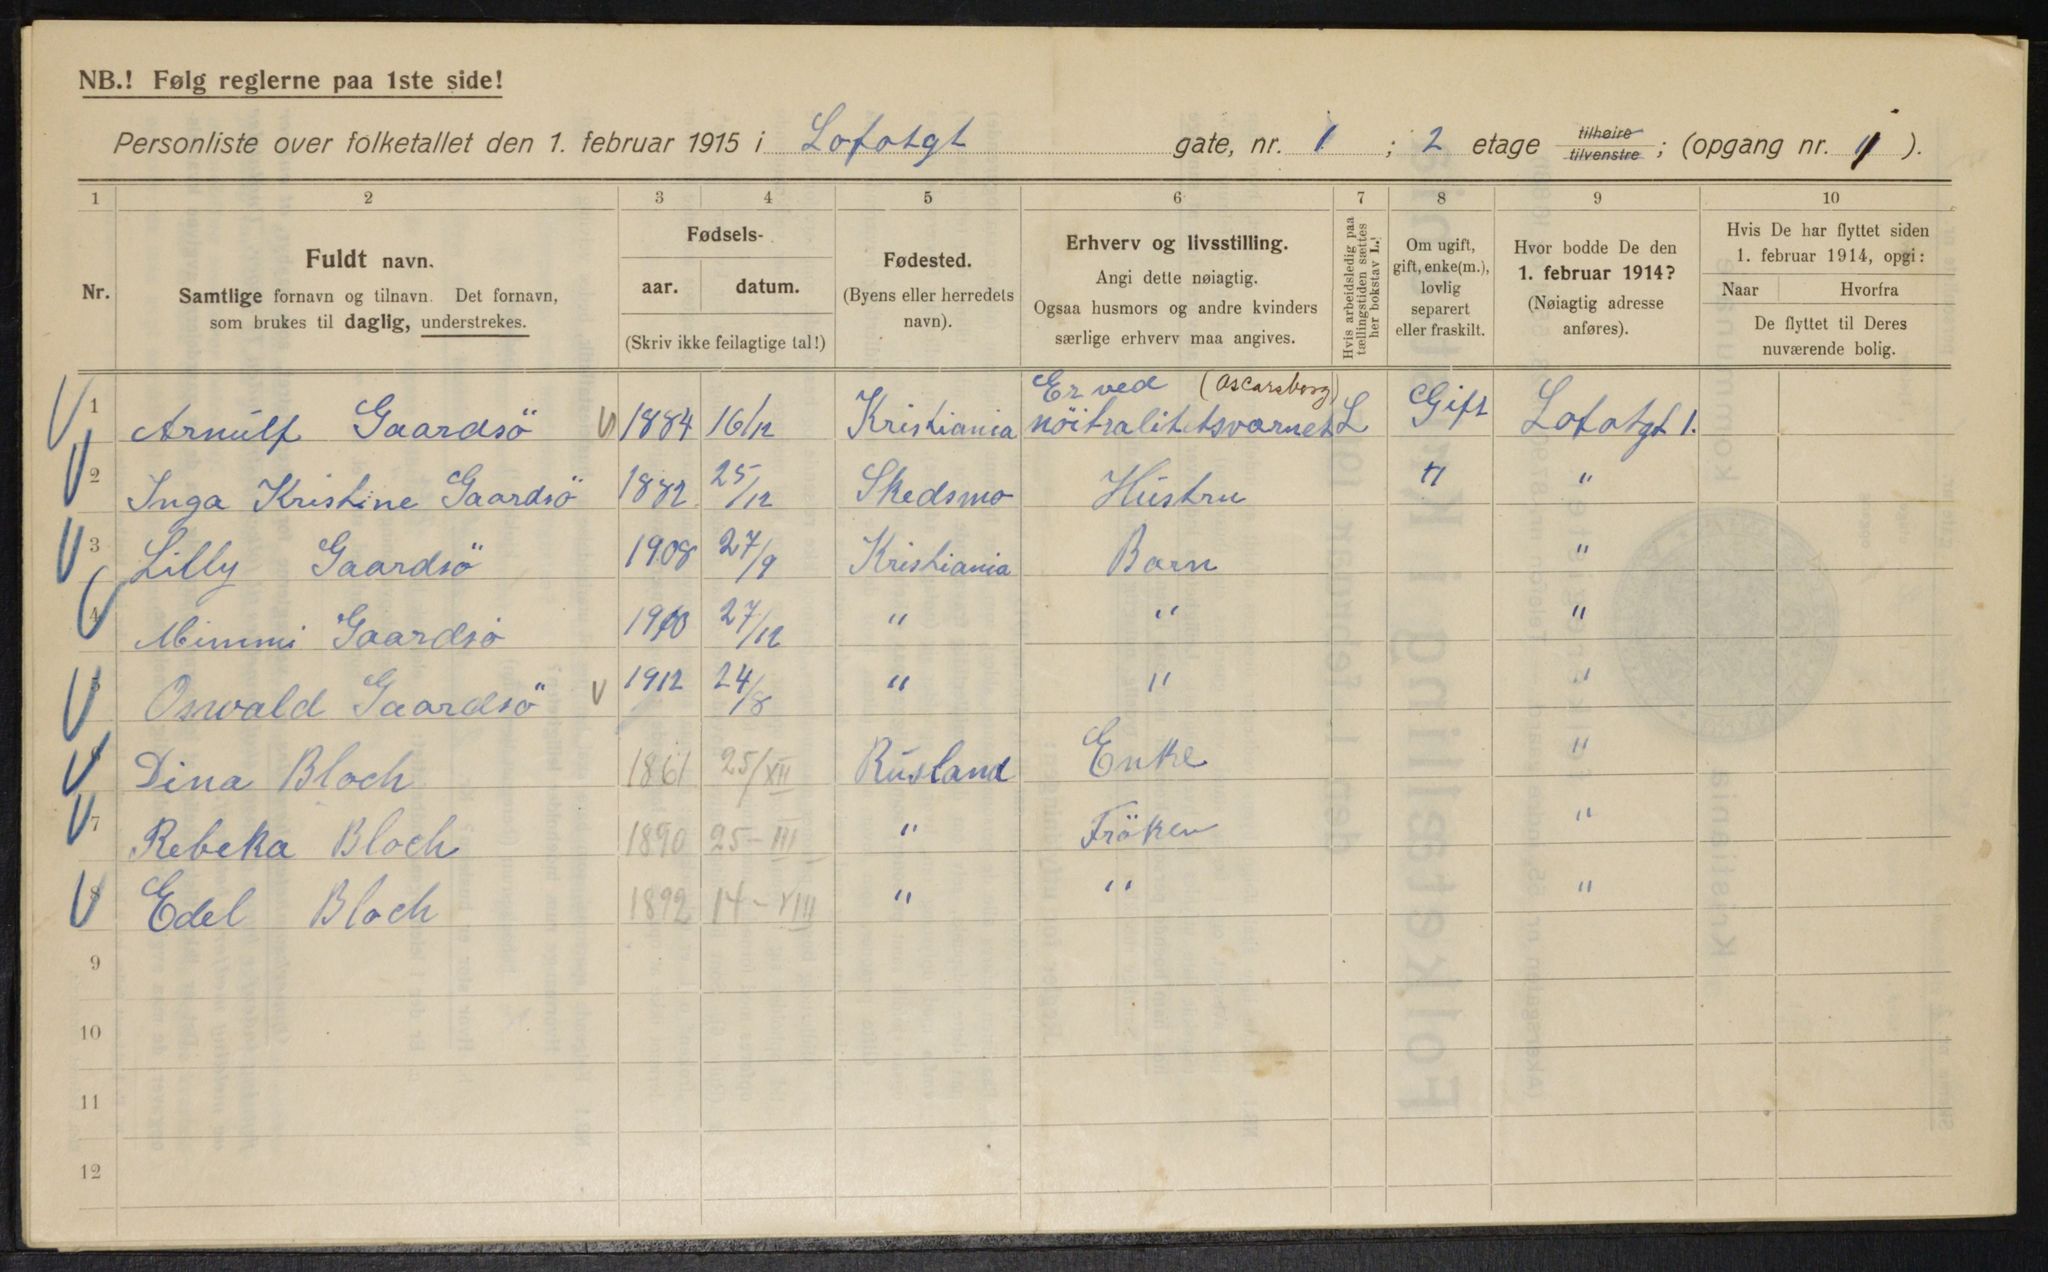 NB.! Følg reglerne paa 1ste side!
Personliste over folketallet den 1. februar 1915 i Lofotgt gate, nr. 1 ; 2 etage tilhøire tilvenstre ; (opgang nr. 1 ).
1 2 3 4 5 6 7 8 9 10
Nr.
Fuldt navn.
Samtlige fornavn og tilnavn. Det fornavn,
som brukes til daglig, understrekes.
Fødsels-
aar. datum.
(Skriv ikke feilagtige tal!)
Fødested.
(Byens eller herredets
navn).
Erhverv og livsstilling.
Angi dette nøiagtig.
Ogsaa husmors og andre kvinders
særlige erhverv maa angives.
Hvis arbeidsledig paa
tællingstiden sættes
her bokstav L.!
Om ugift,
gift, enke(m.),
lovlig
separert
eller fraskilt.
Hvor bodde De den
1. februar 1914?
(Nøiagtig adresse
anføres).
Hvis De har flyttet siden
1. februar 1914, opgi:
Naar Hvorfra
De flyttet til Deres
nuværende bolig.
Er ved (Oscarsborg)
1 Arnulf Gaardsö 1884 16/12 Kristiania nöitralitetsvarnet L Gift Lofotgt 1.
2 Inga Kristine Gaardsö 1882 25/12 Skedsmo Hustru " "
3 Lilly Gaardsö 1908 27/9 Kristiania Barn "
4 Mimmi Gaardsö 1910 27/12 " " "
5 Oswald Gaardsö 1912 24/8 " " "
6 Dina Bloch 1861 25/XII Rusland Enke "
7 Rebeka Bloch 1890 25-III " Fröken "
8 Edel Bloch 1892 14-VIII " " "
9
10
11
12